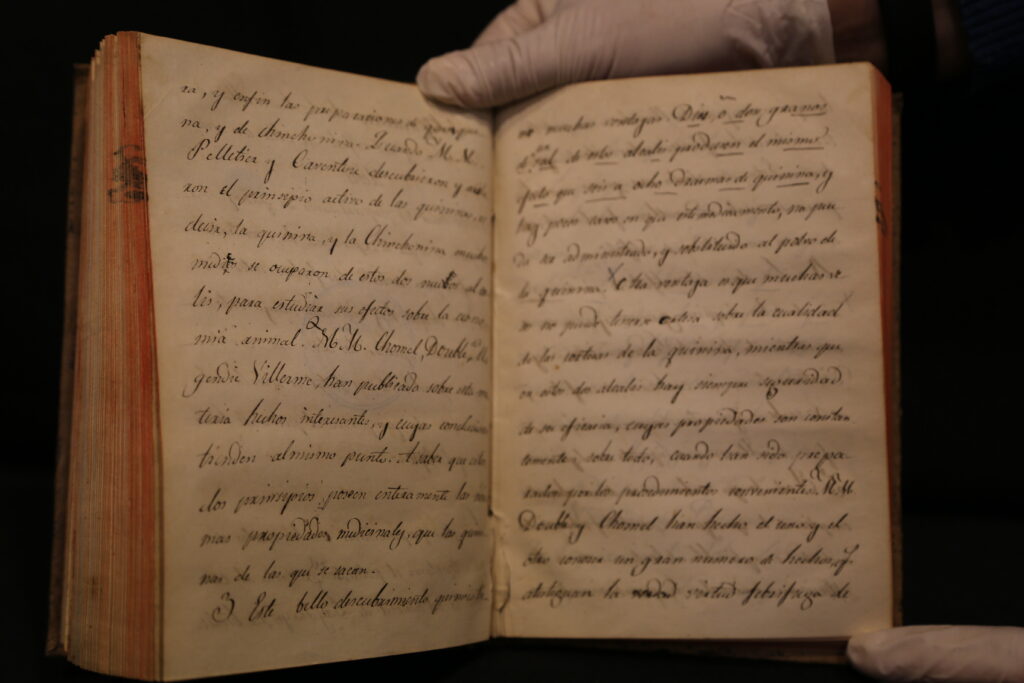 ra, y enfin las preparaciones de
na, y de chinchonina. Quando M. M.
Pelletier y Caventou descubrieron y
ron el prinsipio activo de las quininas,
decir, la quinina, y la Chinchonina mucho
medicos se ocuparon de estos dos nuebos al
lis, para estudiar sus efectos sobre la econo
mia animal. 2 M. M. Chomel, Double, Ma
gendie Villerme, han publicado sobre esta ma
teria hechos interesantes, y cuyas conclusiones
tienden al mismo punto. A saber que estos
dos prinsipios poseen enteramente las mis
mas propiedades medicinales, que las quini
nas de las que se sacan.
3 Este bello descubrimiento quimico
muchas ventajas. Dies, o doz granos
de sal de estos alcalis producen el mismo
efeto que seis a ocho Dracmas de quinina, y
hay pocos casos en que este medicamento, no pue
da ser administrado, y substituido al polvo de
la quinina. Otra ventaja es que muchas ve
ses no puedo tenerse sobre la cualidad
de las cortesas de la quinina, mientras que
en estos dos alcalis hay siempre seguridad
de su eficacia, cuyas propiedades son constan
temente; sobre todo, cuando han sido prepa
rados por los procedimientos convenientes. M. M.
Double y Chomel han hecho el uno y el
otro conocer un gran numero de hechos, q.
atestiguan la virtud febrifuga de